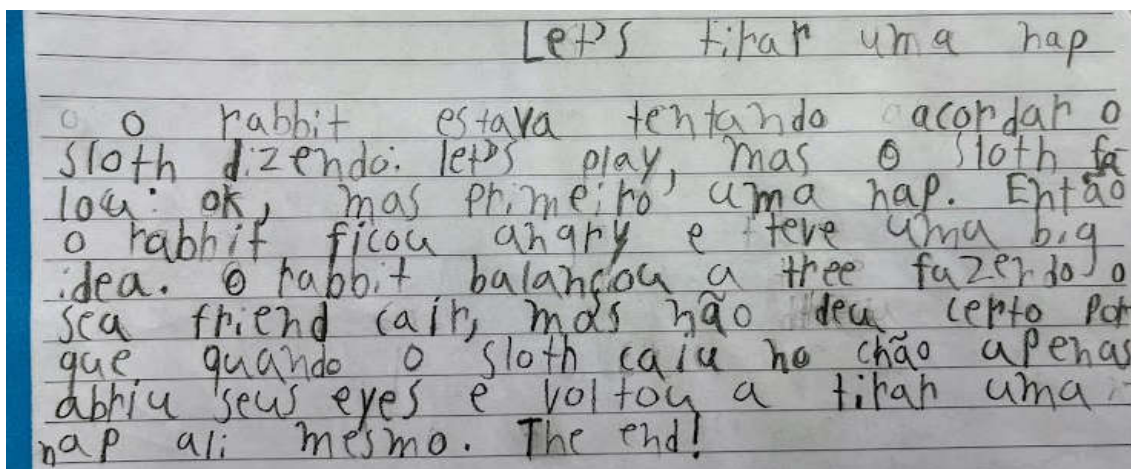 Let's tirar uma nap
O rabbit estava tentando acordar o
sloth dizendo: let's play, mas o sloth fa
lou: ok, mas primeiro uma nap. Então
o rabbit ficou angry e teve uma big
idea. O rabbit balançou a tree fazendo o
seu friend cair, mas não deu certo por
que quando o sloth caiu no chão apenas
abriu seus eyes e voltou a tirar uma
nap ali mesmo. The end!